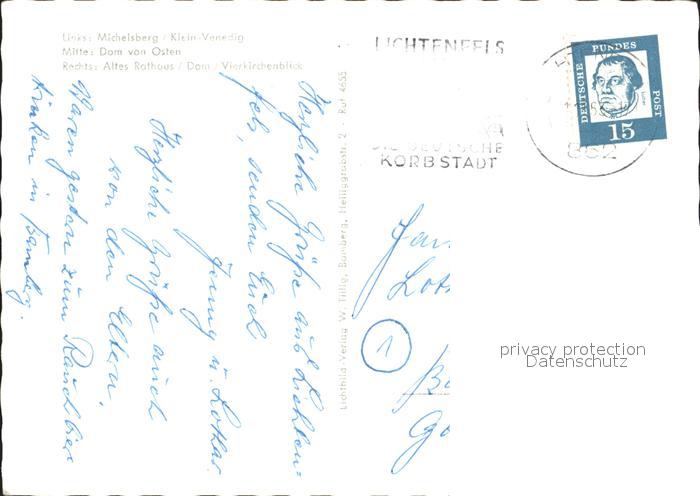 Links: Michelsberg / Klein-Venedig
Mitte: Dom von Osten
Rechts: Altes Rathaus / Dom / Vierkirchenblick
Herzliche Grüße aus Lichten=
fels, senden Euch
Jenny u. Lothar.
Herzliche Grüße auch
von den Eltern.
Waren gestern zum Rauchbier
trinken in Bamberg.
Lichtbild-Verlag W. Tillig, Bamberg, Heiliggrabstr. 2 · Ruf 4655
LICHTENFELS
DIE DEUTSCHE
KORBSTADT
DEUTSCHE
BUNDES
POST
Luther
15
862
Fam
Loth
1
privacy protection
Datenschutz